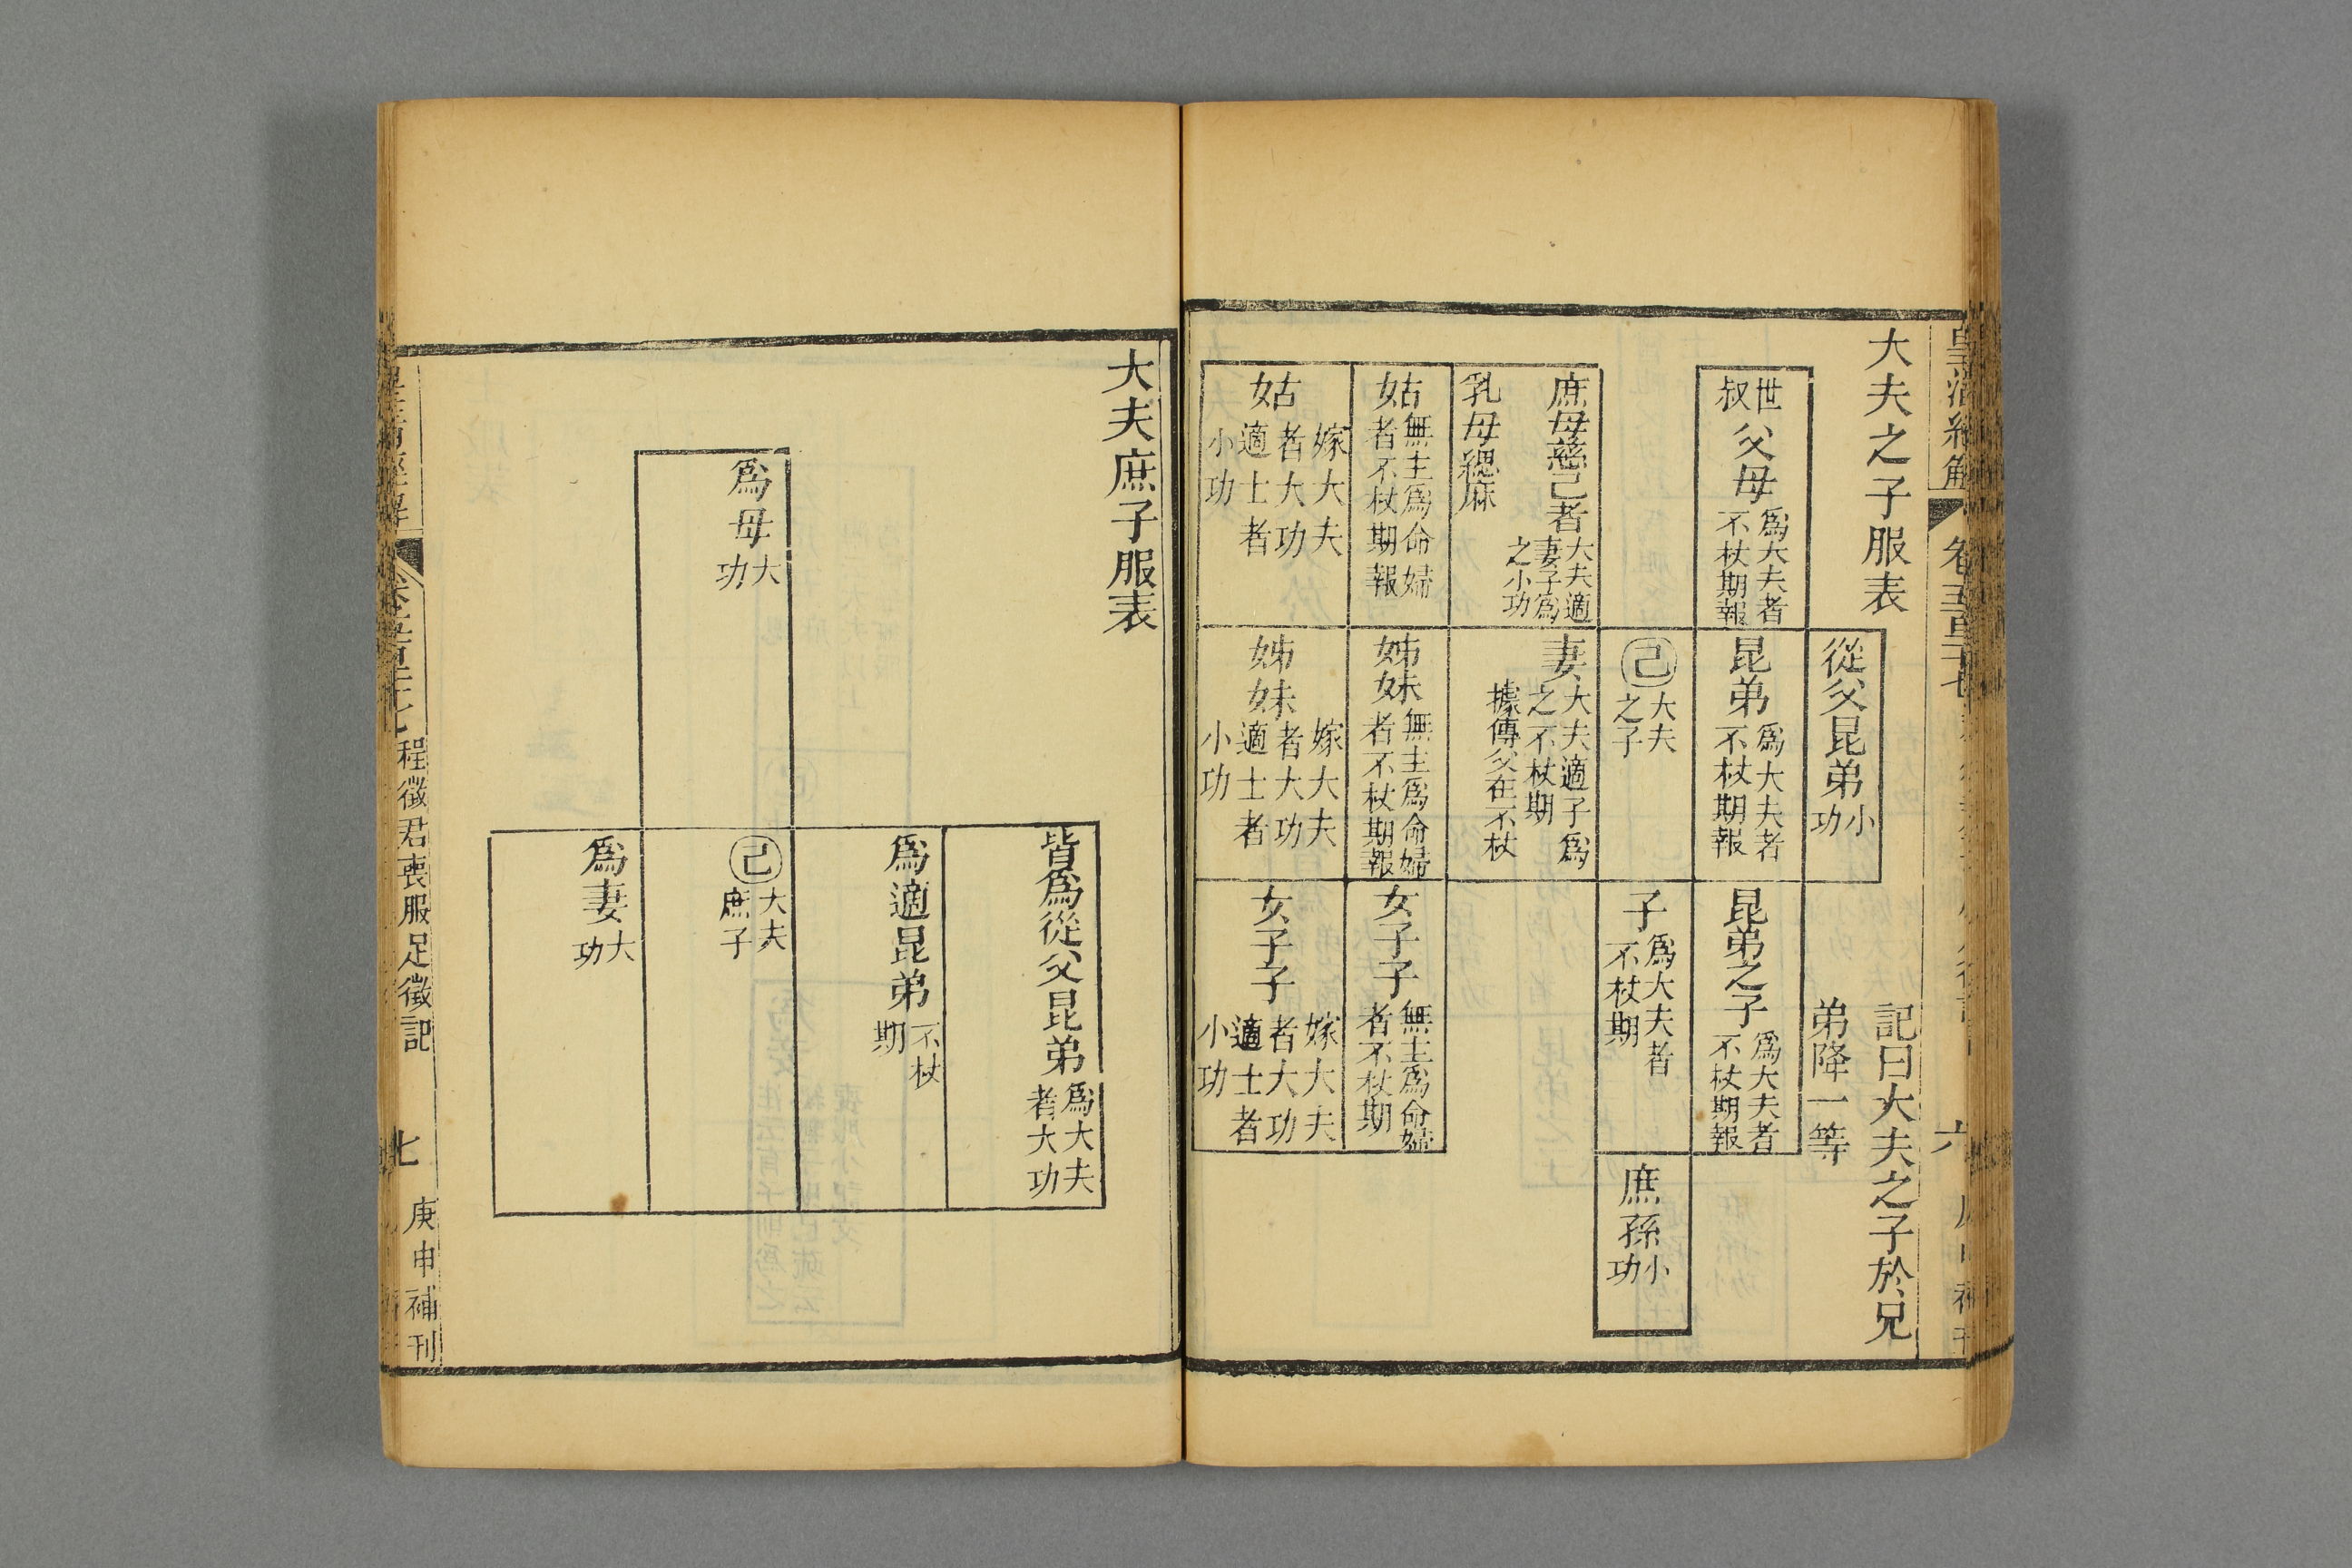 大夫之子服表
從父昆弟小功
記曰大夫之子於兄
弟降一等
世叔父母爲大夫者不杖期報
昆弟爲大夫者不杖期報
昆弟之子爲大夫者不杖期報
己大夫之子
子爲大夫者不杖期
庶孫小功
庶母慈己者大夫適妻子爲之小功
乳母緦麻
妻大夫適子爲之不杖期
據傳父在不杖
姑無主爲命婦者不杖期報
姊妹無主爲命婦者不杖期報
女子子無主爲命婦者不杖期
姑嫁大夫者大功適士者小功
姊妹嫁大夫者大功適士者小功
女子子嫁大夫者大功適士者小功
大夫庶子服表
皆爲從父昆弟爲大夫者大功
爲適昆弟不杖期
爲母大功
己大夫庶子
爲妻大功
程徵君喪服足徵記
七
庚申補刊